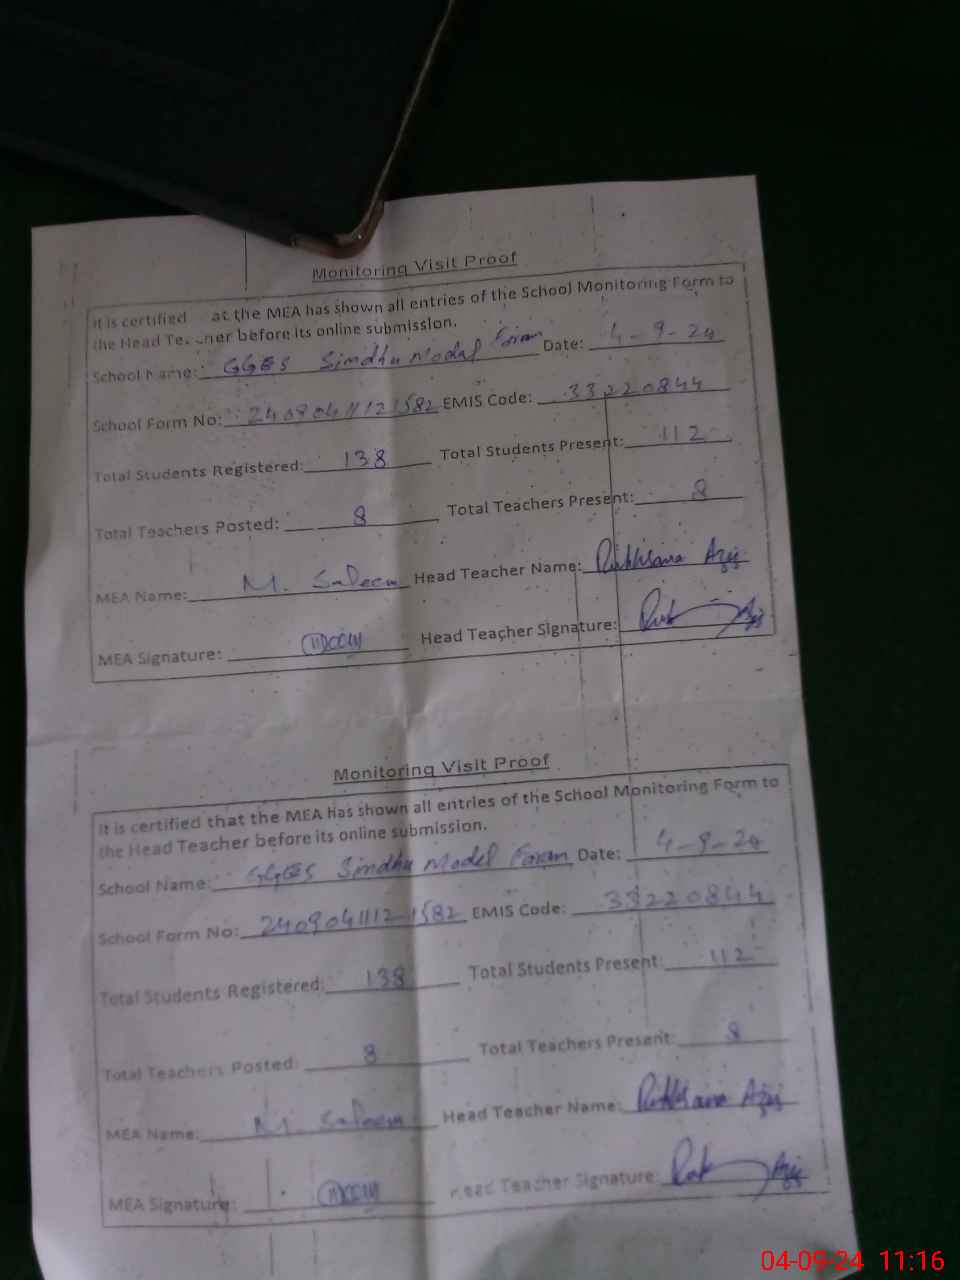 Monitoring Visit Proof
It is certified at the MEA has shown all entries of the School Monitoring Form to
the Head Te ner before its online submission.
School Name: GGES Sindhu Model Farm Date: 4-9-24
School Form No: 2409041112 1582 EMIS Code: 33220844
Total Students Registered: 138 Total Students Present: 112
Total Teachers Posted: 8 Total Teachers Present: 8
MEA Name: M. Saleem Head Teacher Name: Rukhsana Aziz
MEA Signature: Head Teacher Signature:
Monitoring Visit Proof
It is certified that the MEA has shown all entries of the School Monitoring Form to
the Head Teacher before its online submission.
School Name: GGES Sindhu Model Farm Date: 4-9-24
School Form No: 2409041112 1582 EMIS Code: 33220844
Total Students Registered: 138 Total Students Present: 112
Total Teachers Posted: 8 Total Teachers Present: 8
MEA Name: M. Saleem Head Teacher Name: Rukhsana Aziz
MEA Signature: Head Teacher Signature: Aziz
04-09-24 11:16